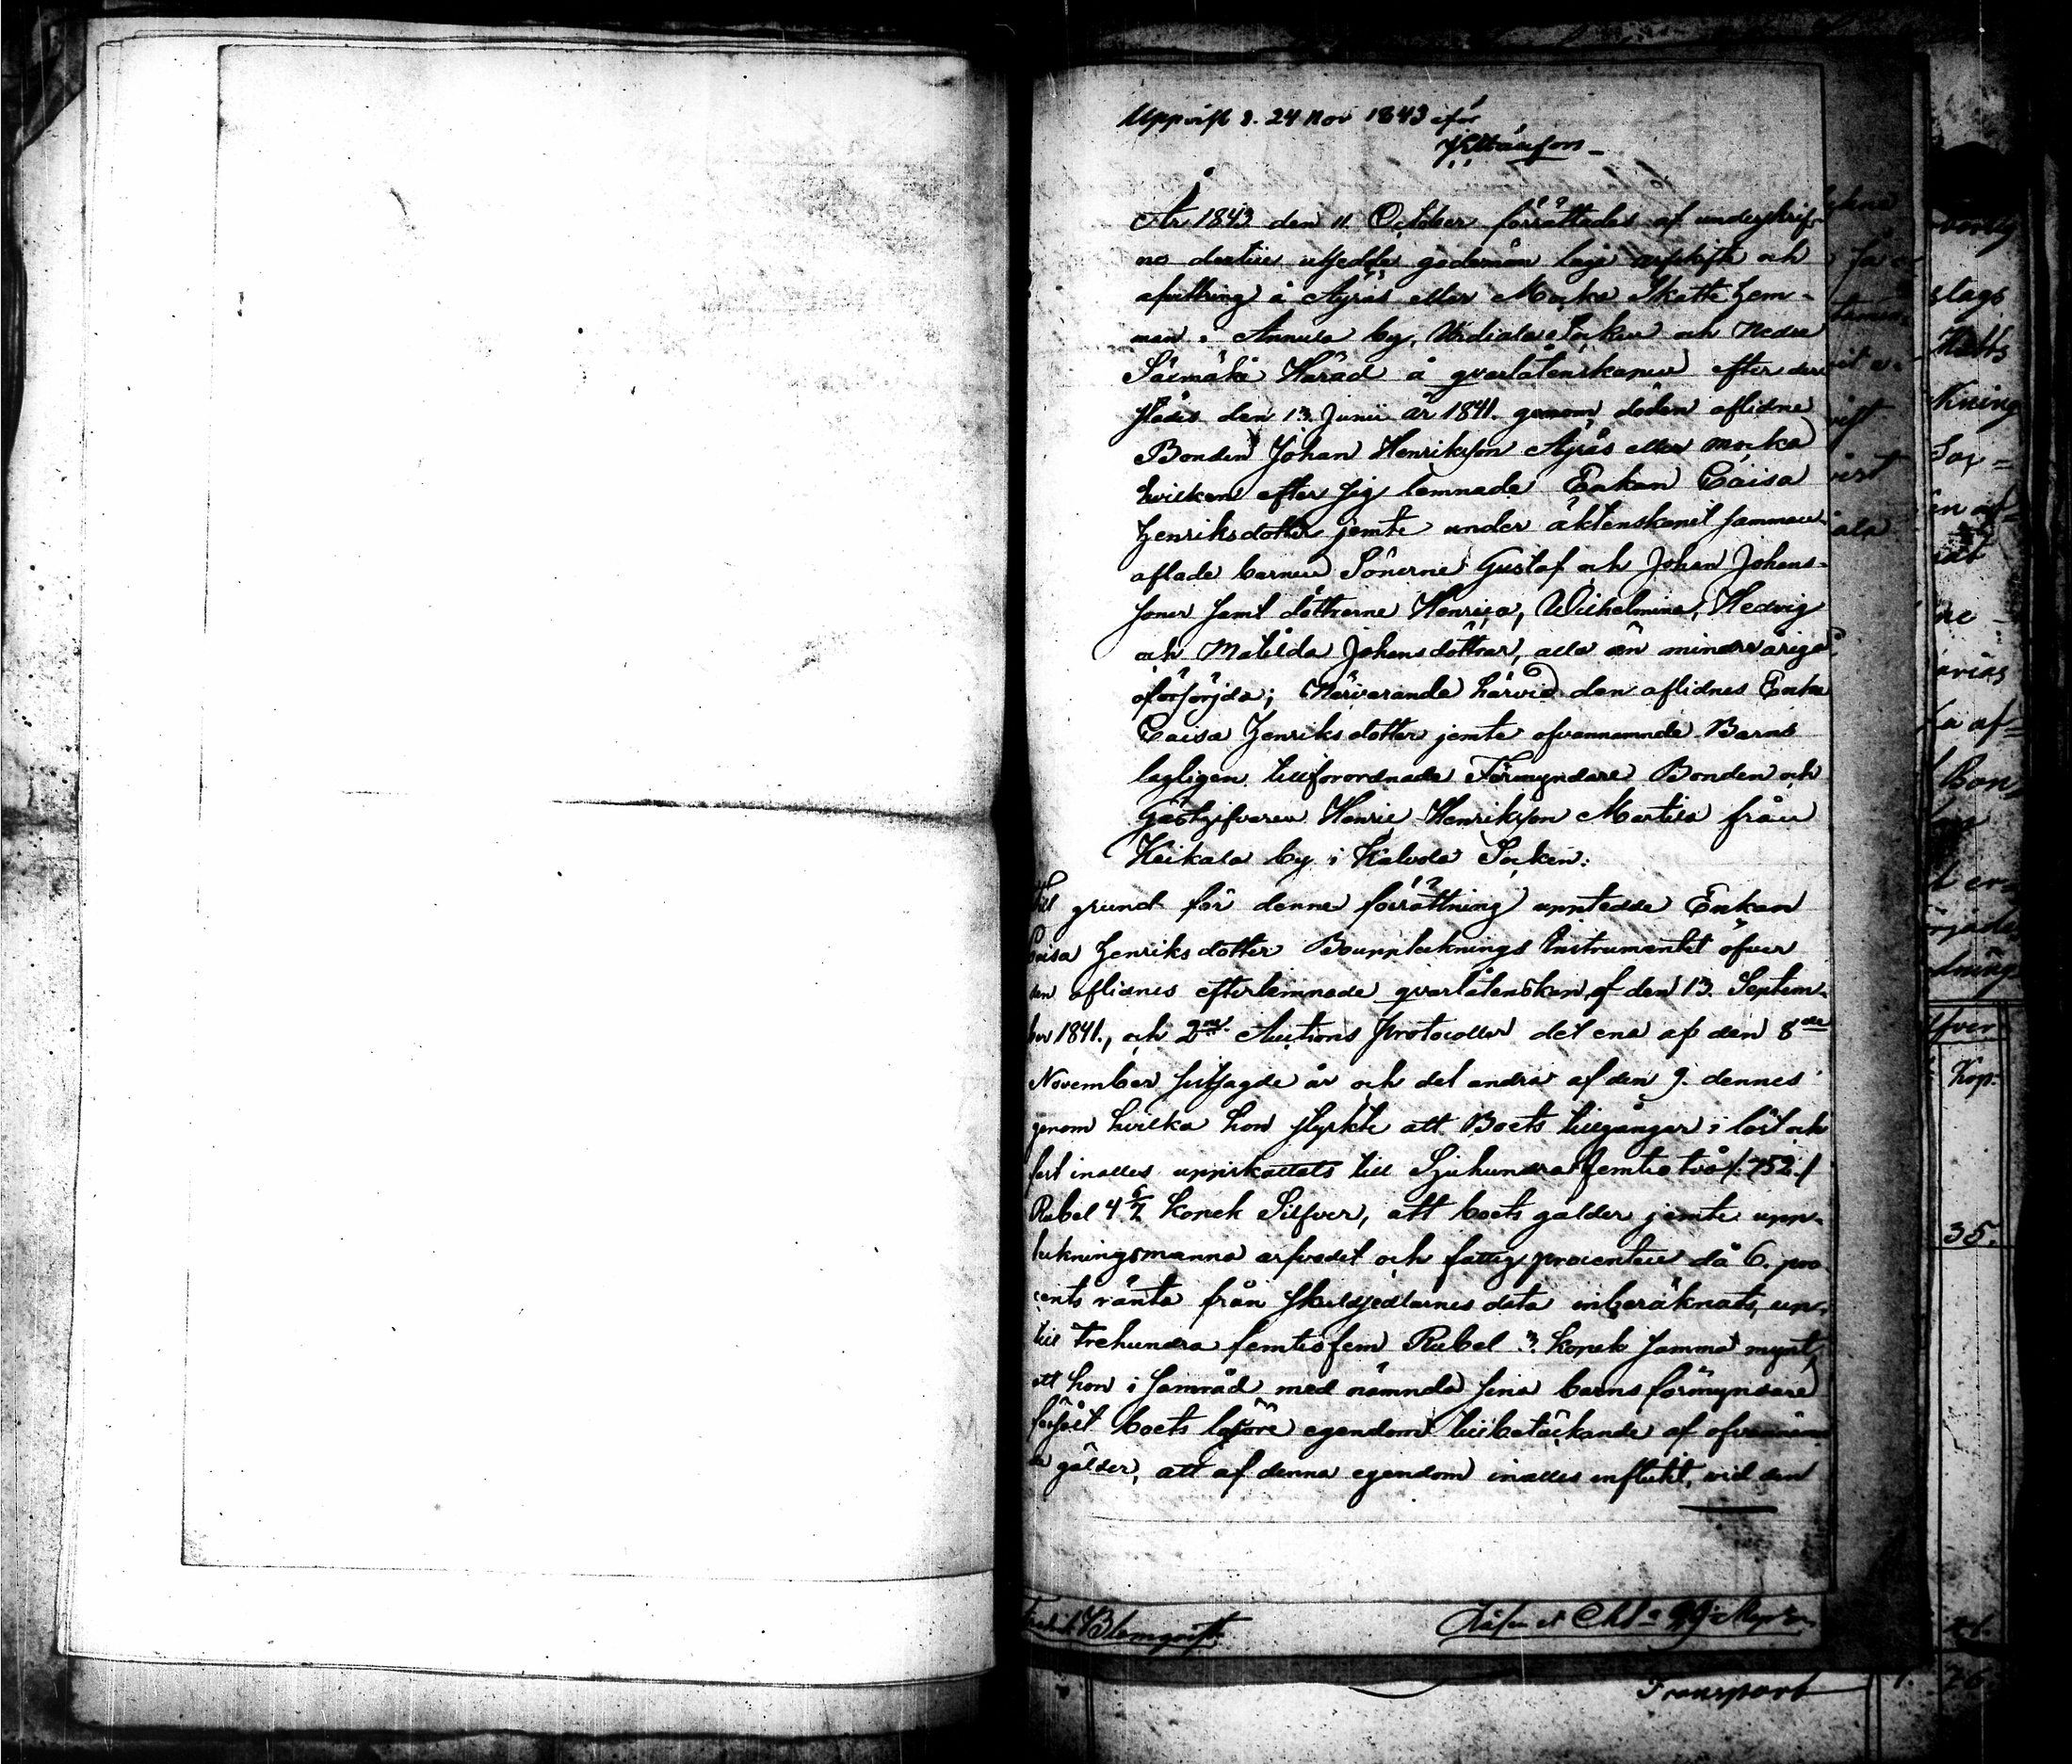 Uppvist d. 24 Nov 1843 inför
År 1843 den 11 October förrättades af underskrif-
ne dertill utsedde godemän laga arfskifte och
afvittring å Äyräs eller Mocka Skatte hem-
man i Annula by, Urdiala Socken och Nedre
Säxmäki Härad å qvarlåtenskapen efter der-
städes den 13 Junii år 1841. genom döden aflidne
Bonden Johan Henriksson Äyräs eller Mocka
hvilken efter sig lemnade Enkan Caisa
Henriksdotter jemte under äktenskapet samman-
aflade barnen Sönerne Gustaf och Johan Johans-
söner samt döttrarne Henrica, Wilhelmina, Hedvig
och Matilda Johansdöttrar, alla än minderåriga
oförsörjda; Närvarande härvid den aflidnes Enka
Caisa Henriksdotter jemte ofvannämnde Barns
lagligen tillförordnade Förmyndare Bonden och
Gästgifvaren Henric Henriksson Martila från
Heikala by i Kalvola Socken.
Till grund för denna förrättning upptedde Enkan
Caisa Henriksdotter Bouppteknings Instrumentet öfver
den aflidnes efterlemnade qvarlåtenskap af den 13. Septem-
ber 1841., och 2ne Auctions Protocoller det ena af den 8de
November sistsagde år och det andra af den 9. dennes
genom hvilka hon styrkte att Boets tillgångar i löst och
fast inalles uppskattats till Sjuhundra femtiotvå /: 752. /
Rubel 4 6/7 Kopek Silfver, att boets gälder jemte upp-
tekningsmanna arfvodet och fattig procenten då 6. pro
cents ränta från skuldsedlarnes data inberäknats, up-
till trehundra femtiofem Rubel 3. Kopek samma mynt,
att hon i samråd med nämnda sina barns förmyndare
försålt boets lösöre egendom till betäckande af ofvannämn
da gälder, att af denna egendom inalles influtit, vid den
Blomqvist
Transport
Kop.
35.